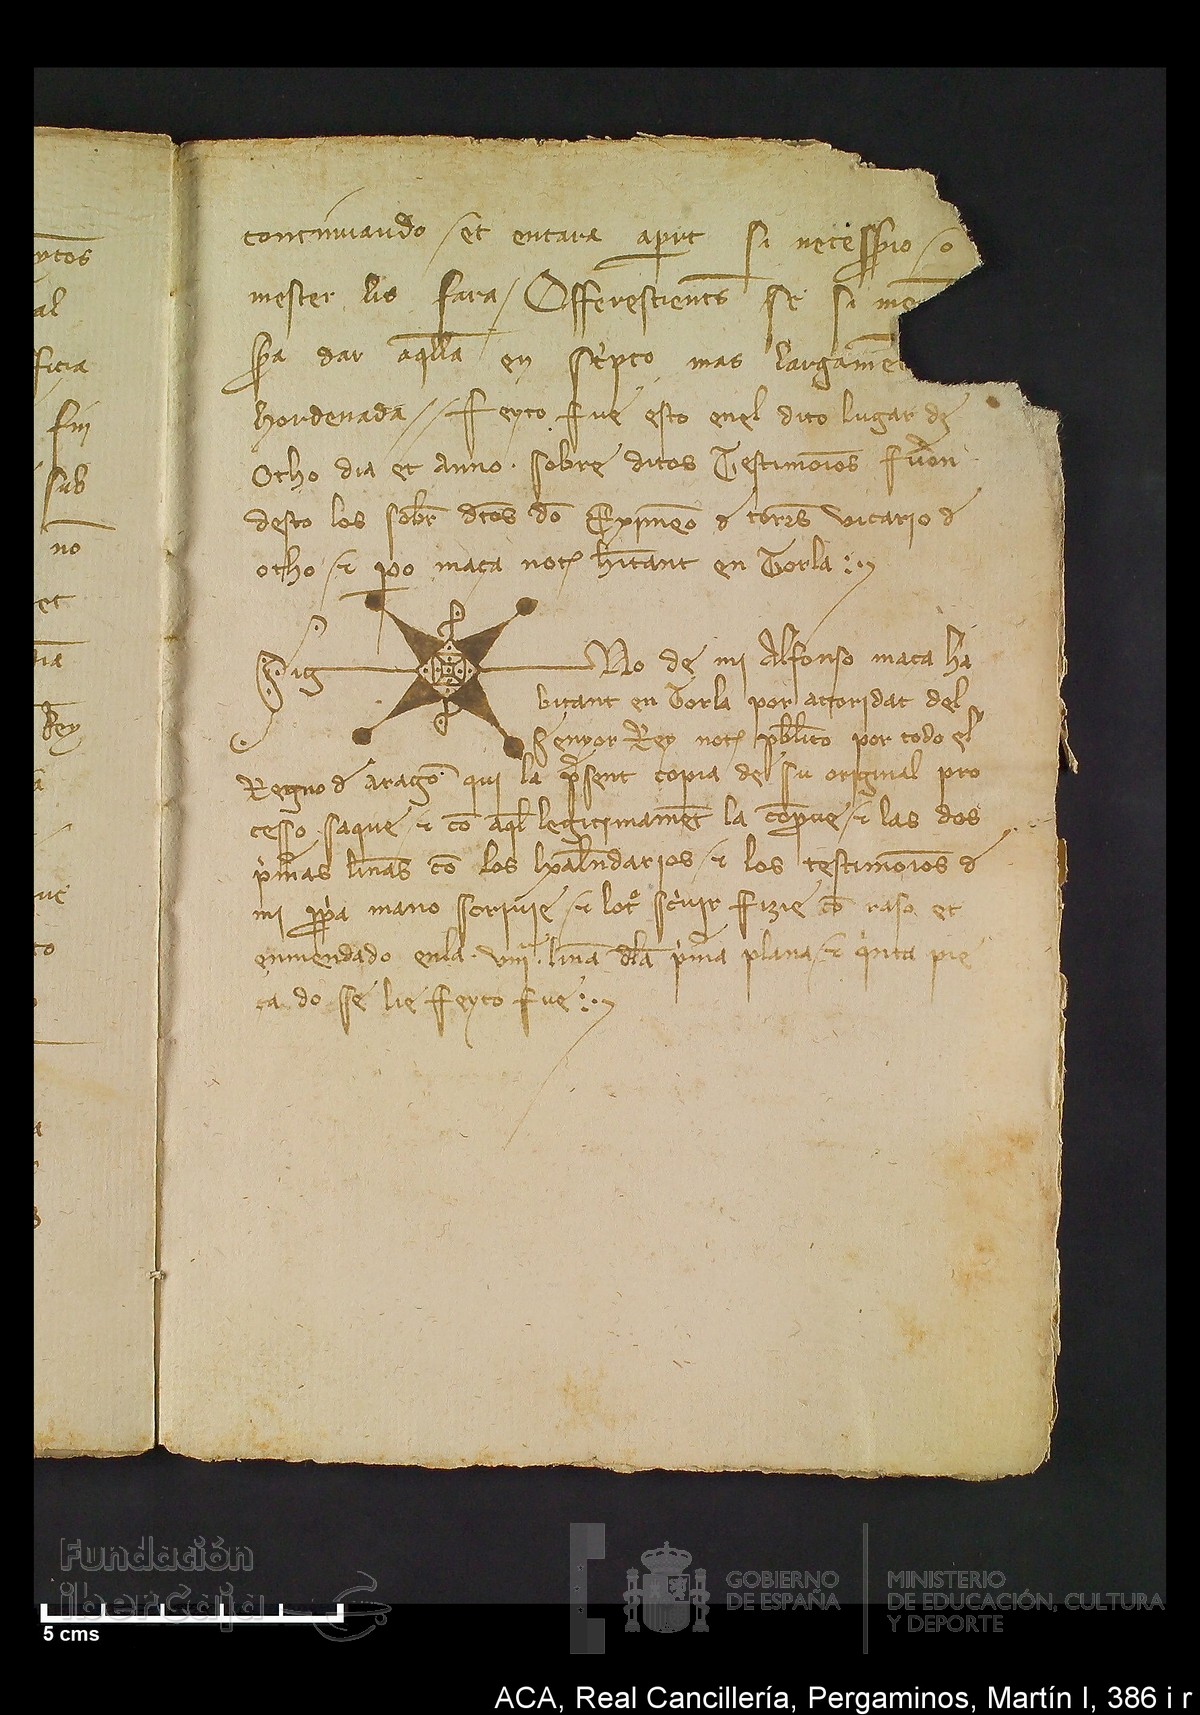 ytos
al
ficia
fin
sub
no
et
Rey
continuando et encara apart si necessario o
mester lis fara Offerescients se si me
pora dar aqlla en scripto mas largame
hordenada feyto fue esto enel dito lugar de
Otho dia et anno sobre ditos Testimonios fueron
desto los sobre dtos do Exime​no d torrs vicario d
otho et po maça not hitant en Torla
Sig No de mi Alfonso maça ha
bitant en Torla por actoridat del
Senyor Rey not pblico por todo el
Regno d aragon qui la present copia de su original pro
cesso saque et co aql legitimament la comprove et las dos
primeras lineas co los kalendarios et los testimonios d
mi propia mano scrivie et lotro scrivir fizie co raso et
enmendado enla viii linea dla primera plana et quinta pie
ça do se lie feyto fue
Fundación
iberCaja
5 cms
GOBIERNO
DE ESPAÑA
MINISTERIO
DE EDUCACIÓN, CULTURA
Y DEPORTE
ACA, Real Cancillería, Pergaminos, Martín I, 386 i r